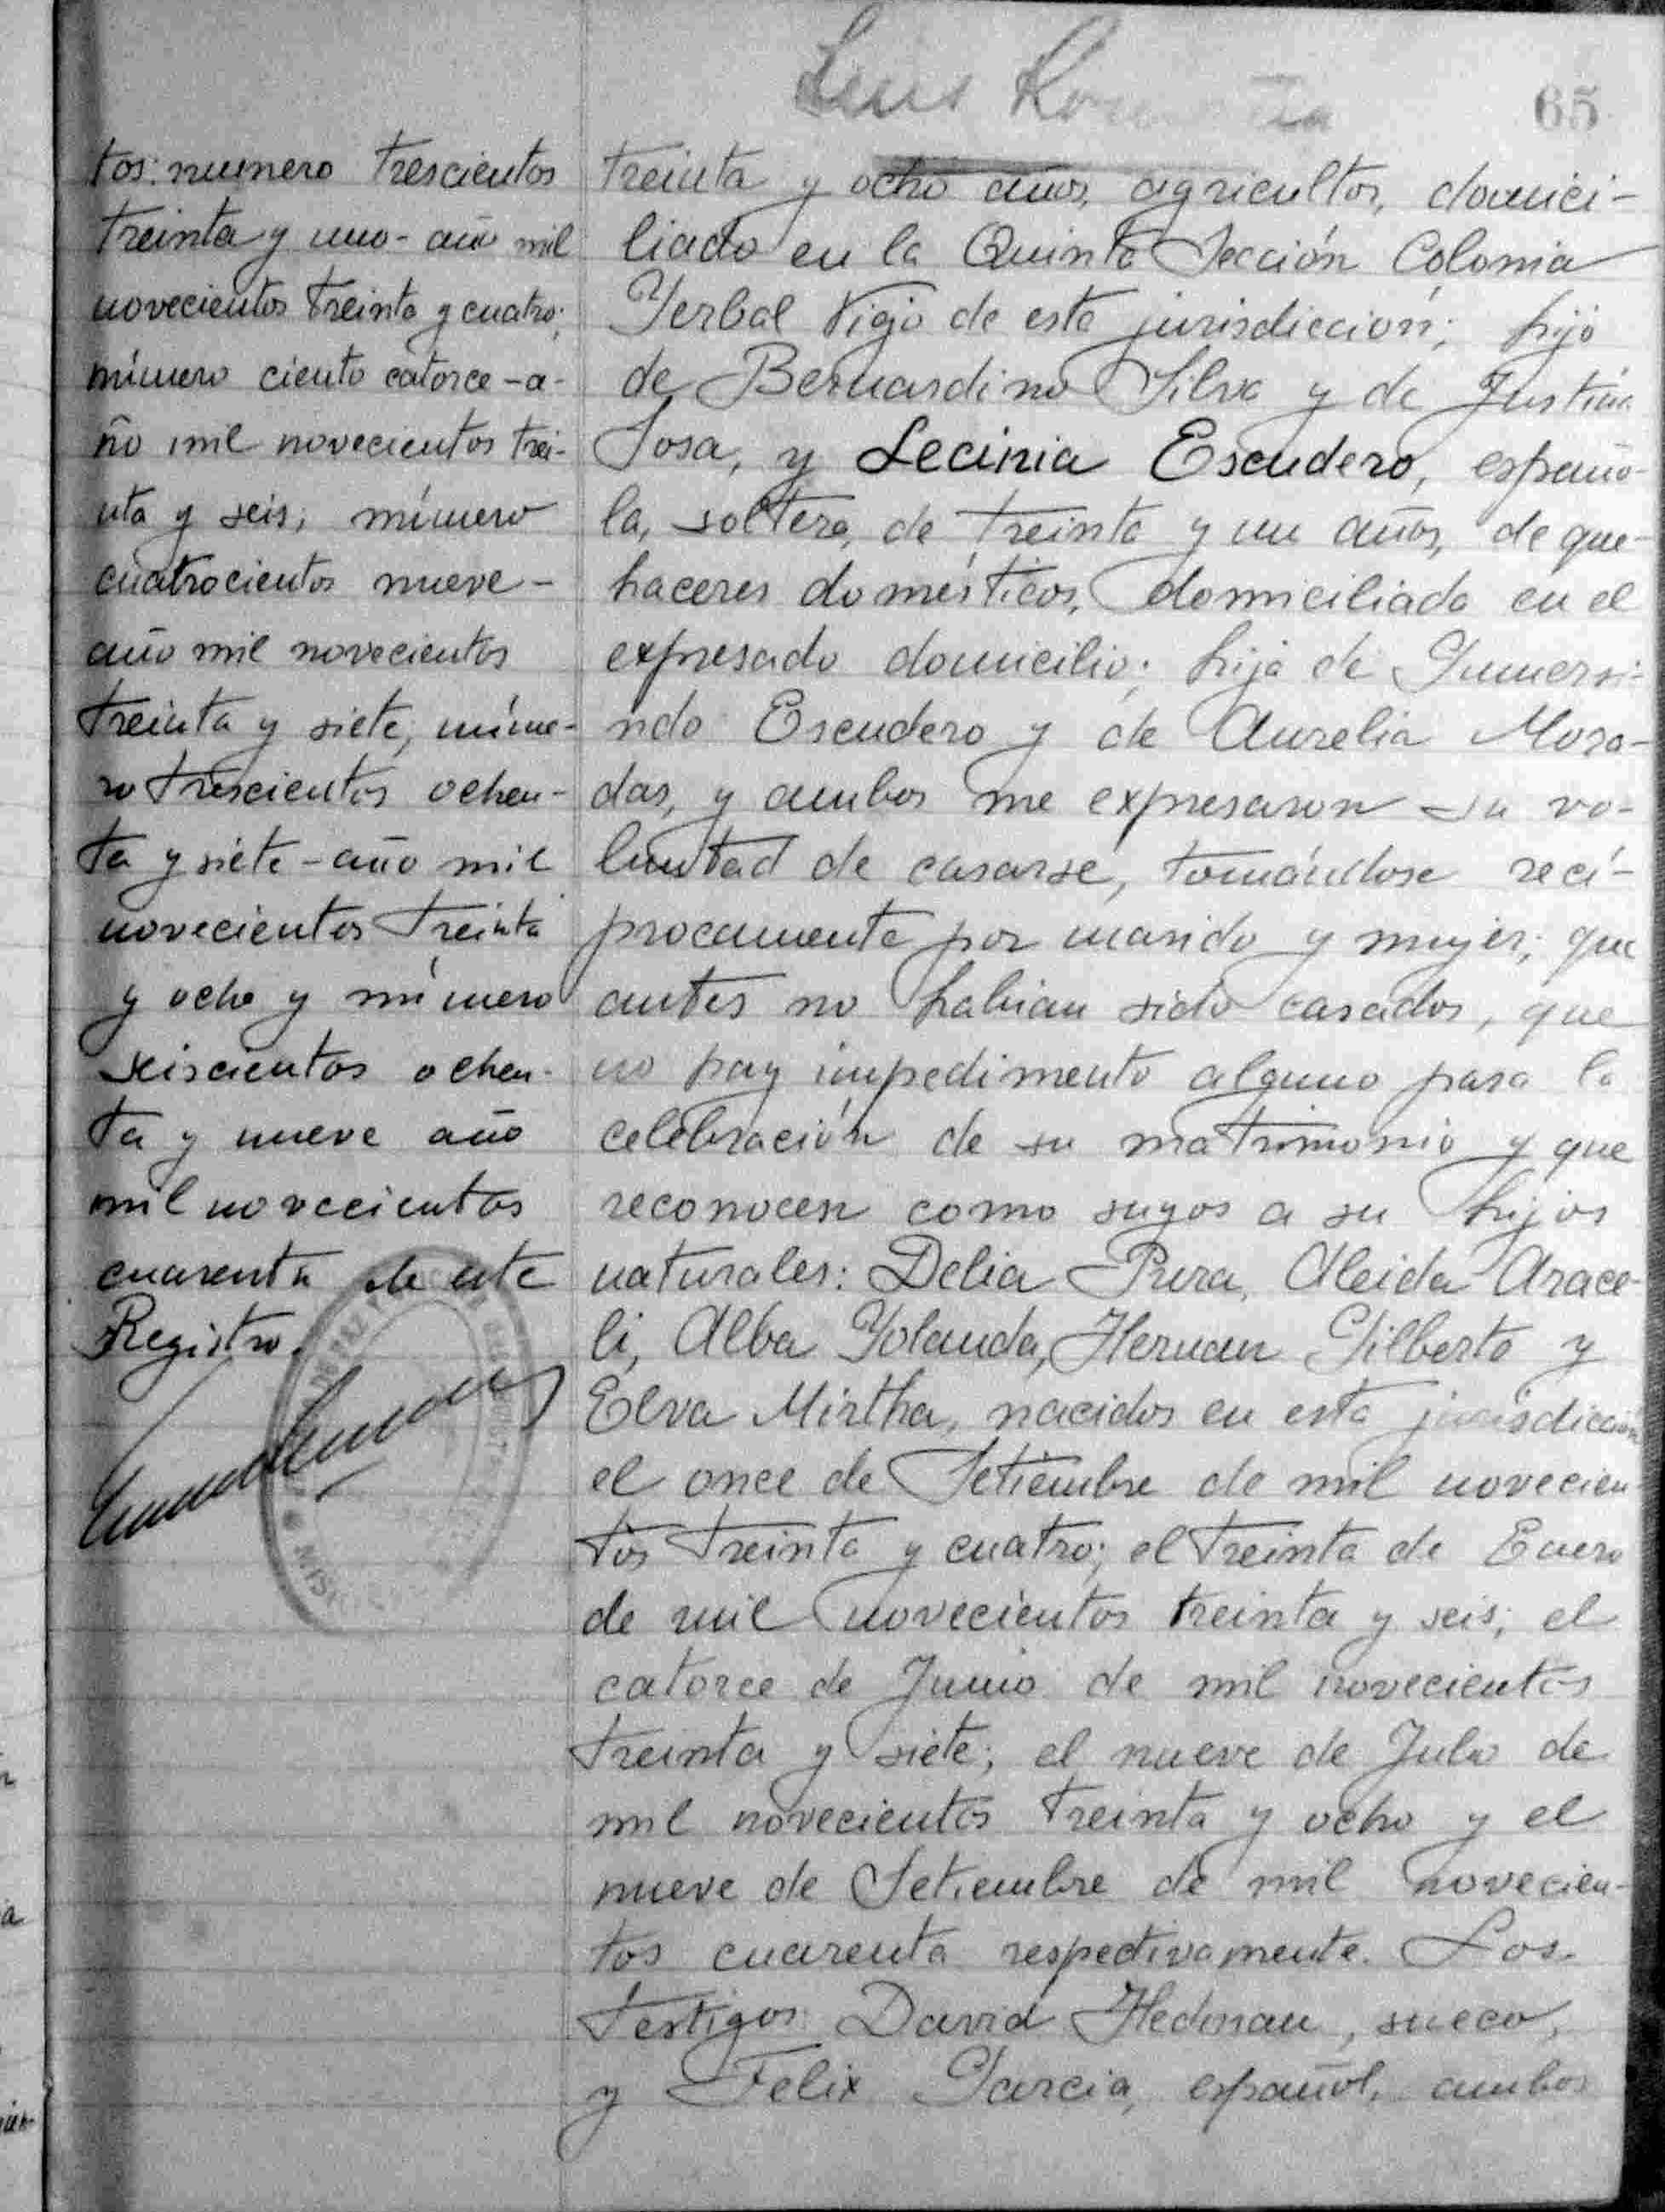 Luis
65
tos: numero trescientos
treinta y uno - año mil
novecientos treinta y cuatro;
número ciento catorce - a-
ño mil novecientos trei-
nta y seis; número
cuatrocientos nueve -
año mil novecientos
treinta y siete; núme-
ro trescientos ochen-
ta y siete - año mil
novecientos treinta
y ocho y número
seiscientos ochen-
ta y nueve año
mil novecientos
cuarenta de este
Registro.
treinta y ocho años, agricultor, domici-
liado en la Quinta Sección Colonia
Yerbal Viejo de esta jurisdicción; hijo
de Bernardino Silva y de Justina
Sosa, y Lecinia Escudero, españo-
la, soltera, de treinta y un años, de que-
haceres domésticos, domiciliada en el
expresado domicilio; hija de Gumersi-
ndo Escudero y de Aurelia Mora-
das, y ambos me expresaron su vo-
luntad de casarse, tomándose recí-
procamente por marido y mujer; que
antes no habian sido casados, que
no hay impedimento alguno para la
celebración de su matrimonio y que
reconocen como suyos a su hijos
naturales: Delia Pura, Aleida Arace-
li, Alba Yolanda, Hernan Gilberto y
Elva Mirtha, nacidos en esta jurisdicción
el once de Setiembre de mil novecien-
tos treinta y cuatro; el treinta de Enero
de mil novecientos treinta y seis; el
catorce de Junio de mil novecientos
treinta y siete; el nueve de Julio de
mil novecientos treinta y ocho y el
nueve de Setiembre de mil novecien-
tos cuarenta respectivamente. Los
testigos David Hedman, sueco,
y Felix Garcia, español, ambos